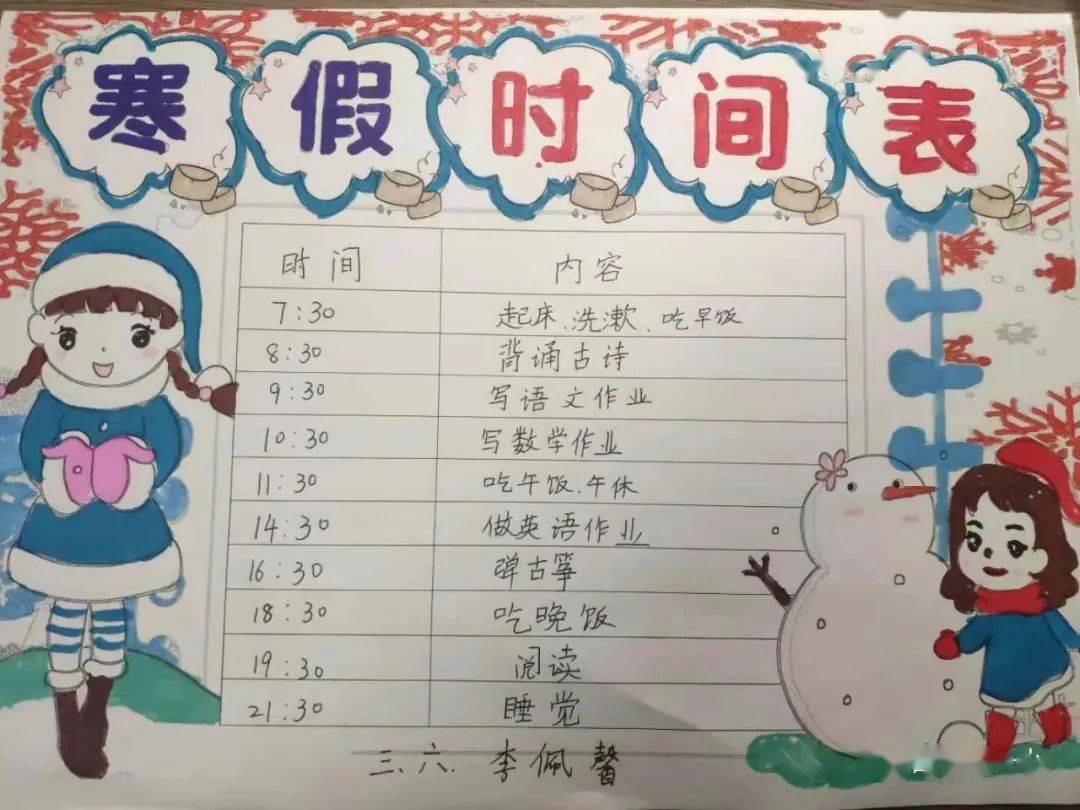 寒假时间表
时间 内容
7:30 起床、洗漱、吃早饭
8:30 背诵古诗
9:30 写语文作业
10:30 写数学作业
11:30 吃午饭、午休
14:30 做英语作业
16:30 弹古筝
18:30 吃晚饭
19:30 阅读
21:30 睡觉
三、六. 李佩馨